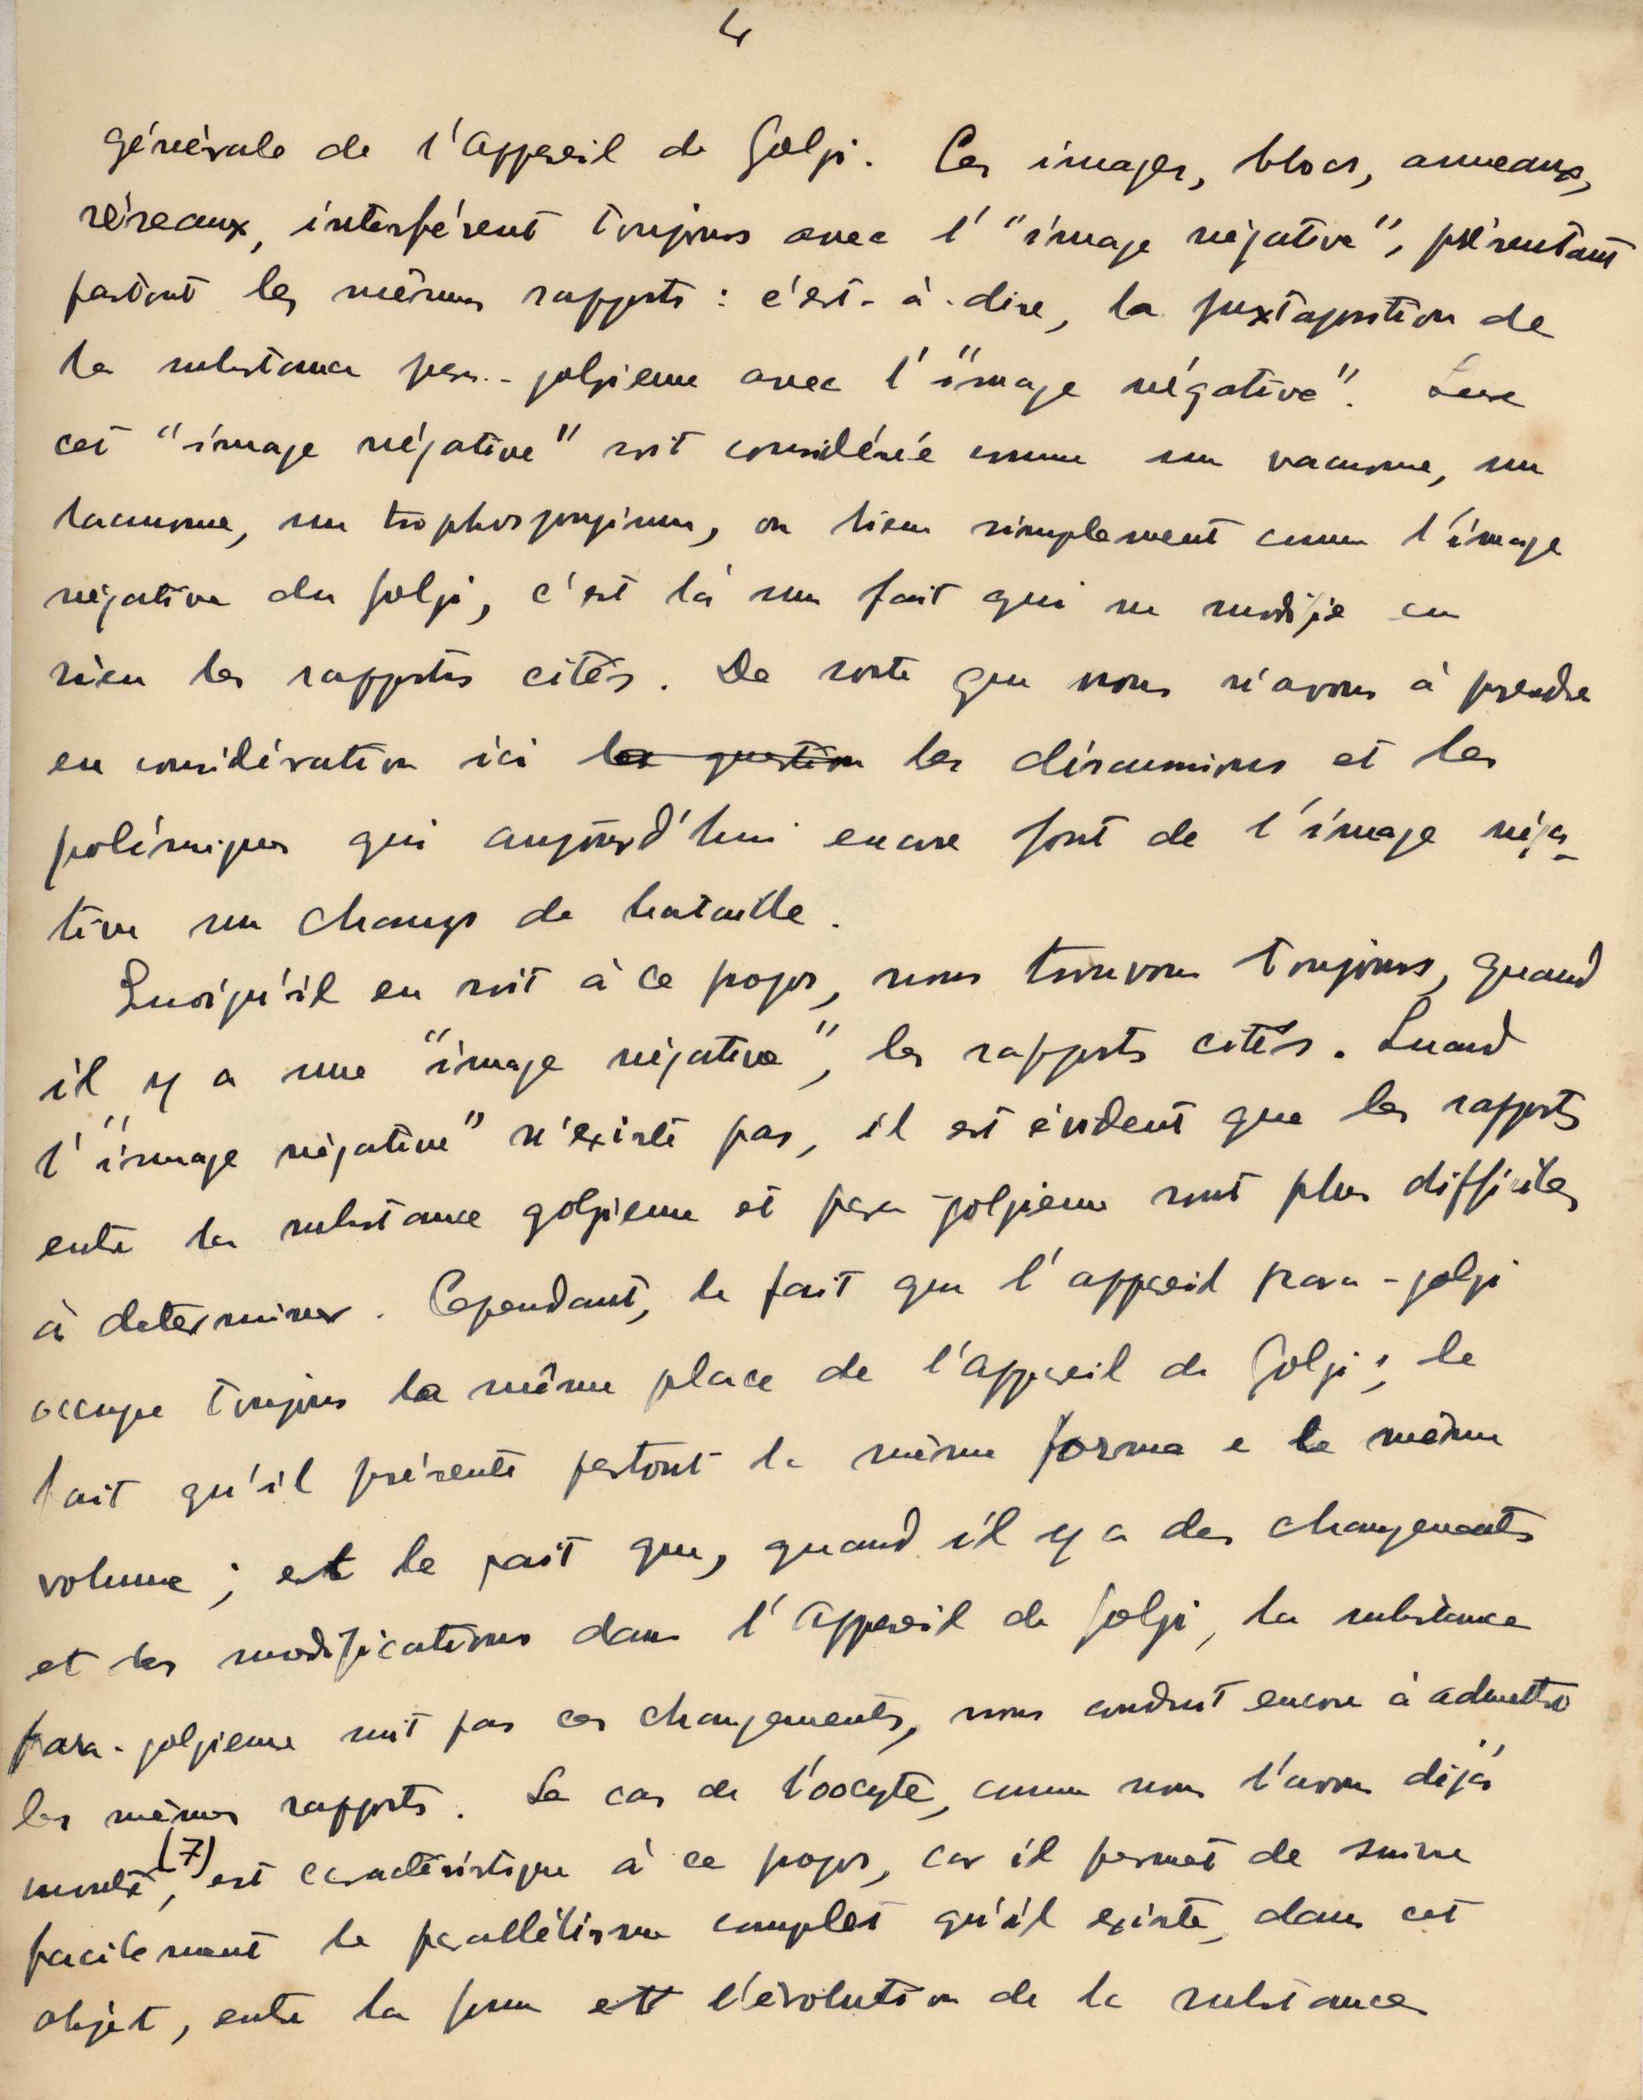 4
générale de l'appareil de Golgi. Ces images, blocs, anneaux,
réseaux, interférent toujours avec l' "image négative", présentant
partout les mêmes rapports : c'est-à-dire, la juxtaposition de
la substance para-golgienne avec l' "image négative". Que
cet "image négative" soit considérée comme un vacuome, un
lacunome, un trophospongium, ou bien simplement comme l'image
négative du Golgi, c'est là un fait qui ne modifie en
rien les rapports cités. De sorte que nous n'avons à prendre
en considération ici la question les discussions et les
polémiques qui aujourd'hui encore font de l'image néga-
tive un champs de bataille.
Quoiqu'il en soit à ce propos, nous trouvons toujours, quand
il y a une "image négative", les rapports cités. Quand
l' "image négative" n'existe pas, il est évident que les rapports
entre la substance golgienne et para-golgienne sont plus difficiles
à determiner. Cependant, le fait que l'appareil para-golgi
occupe toujours la même place de l'appareil de Golgi ; le
fait qu'il présente partout la même forma e le même
volume ; et le fait que, quand il y a des changements
et des modifications dans l'appareil de Golgi, la substance
para-golgienne suit pas ces changements, nous conduit encore à admettre
les mêmes rapports. Le cas de l'oocyte, comme nous l'avons déjà
montré, (7) est caractéristique à ce propos, car il permet de suivre
facilement le parallélisme complet qu'il existe, dans cet
objet, entre la forme et l'évolution de la substance